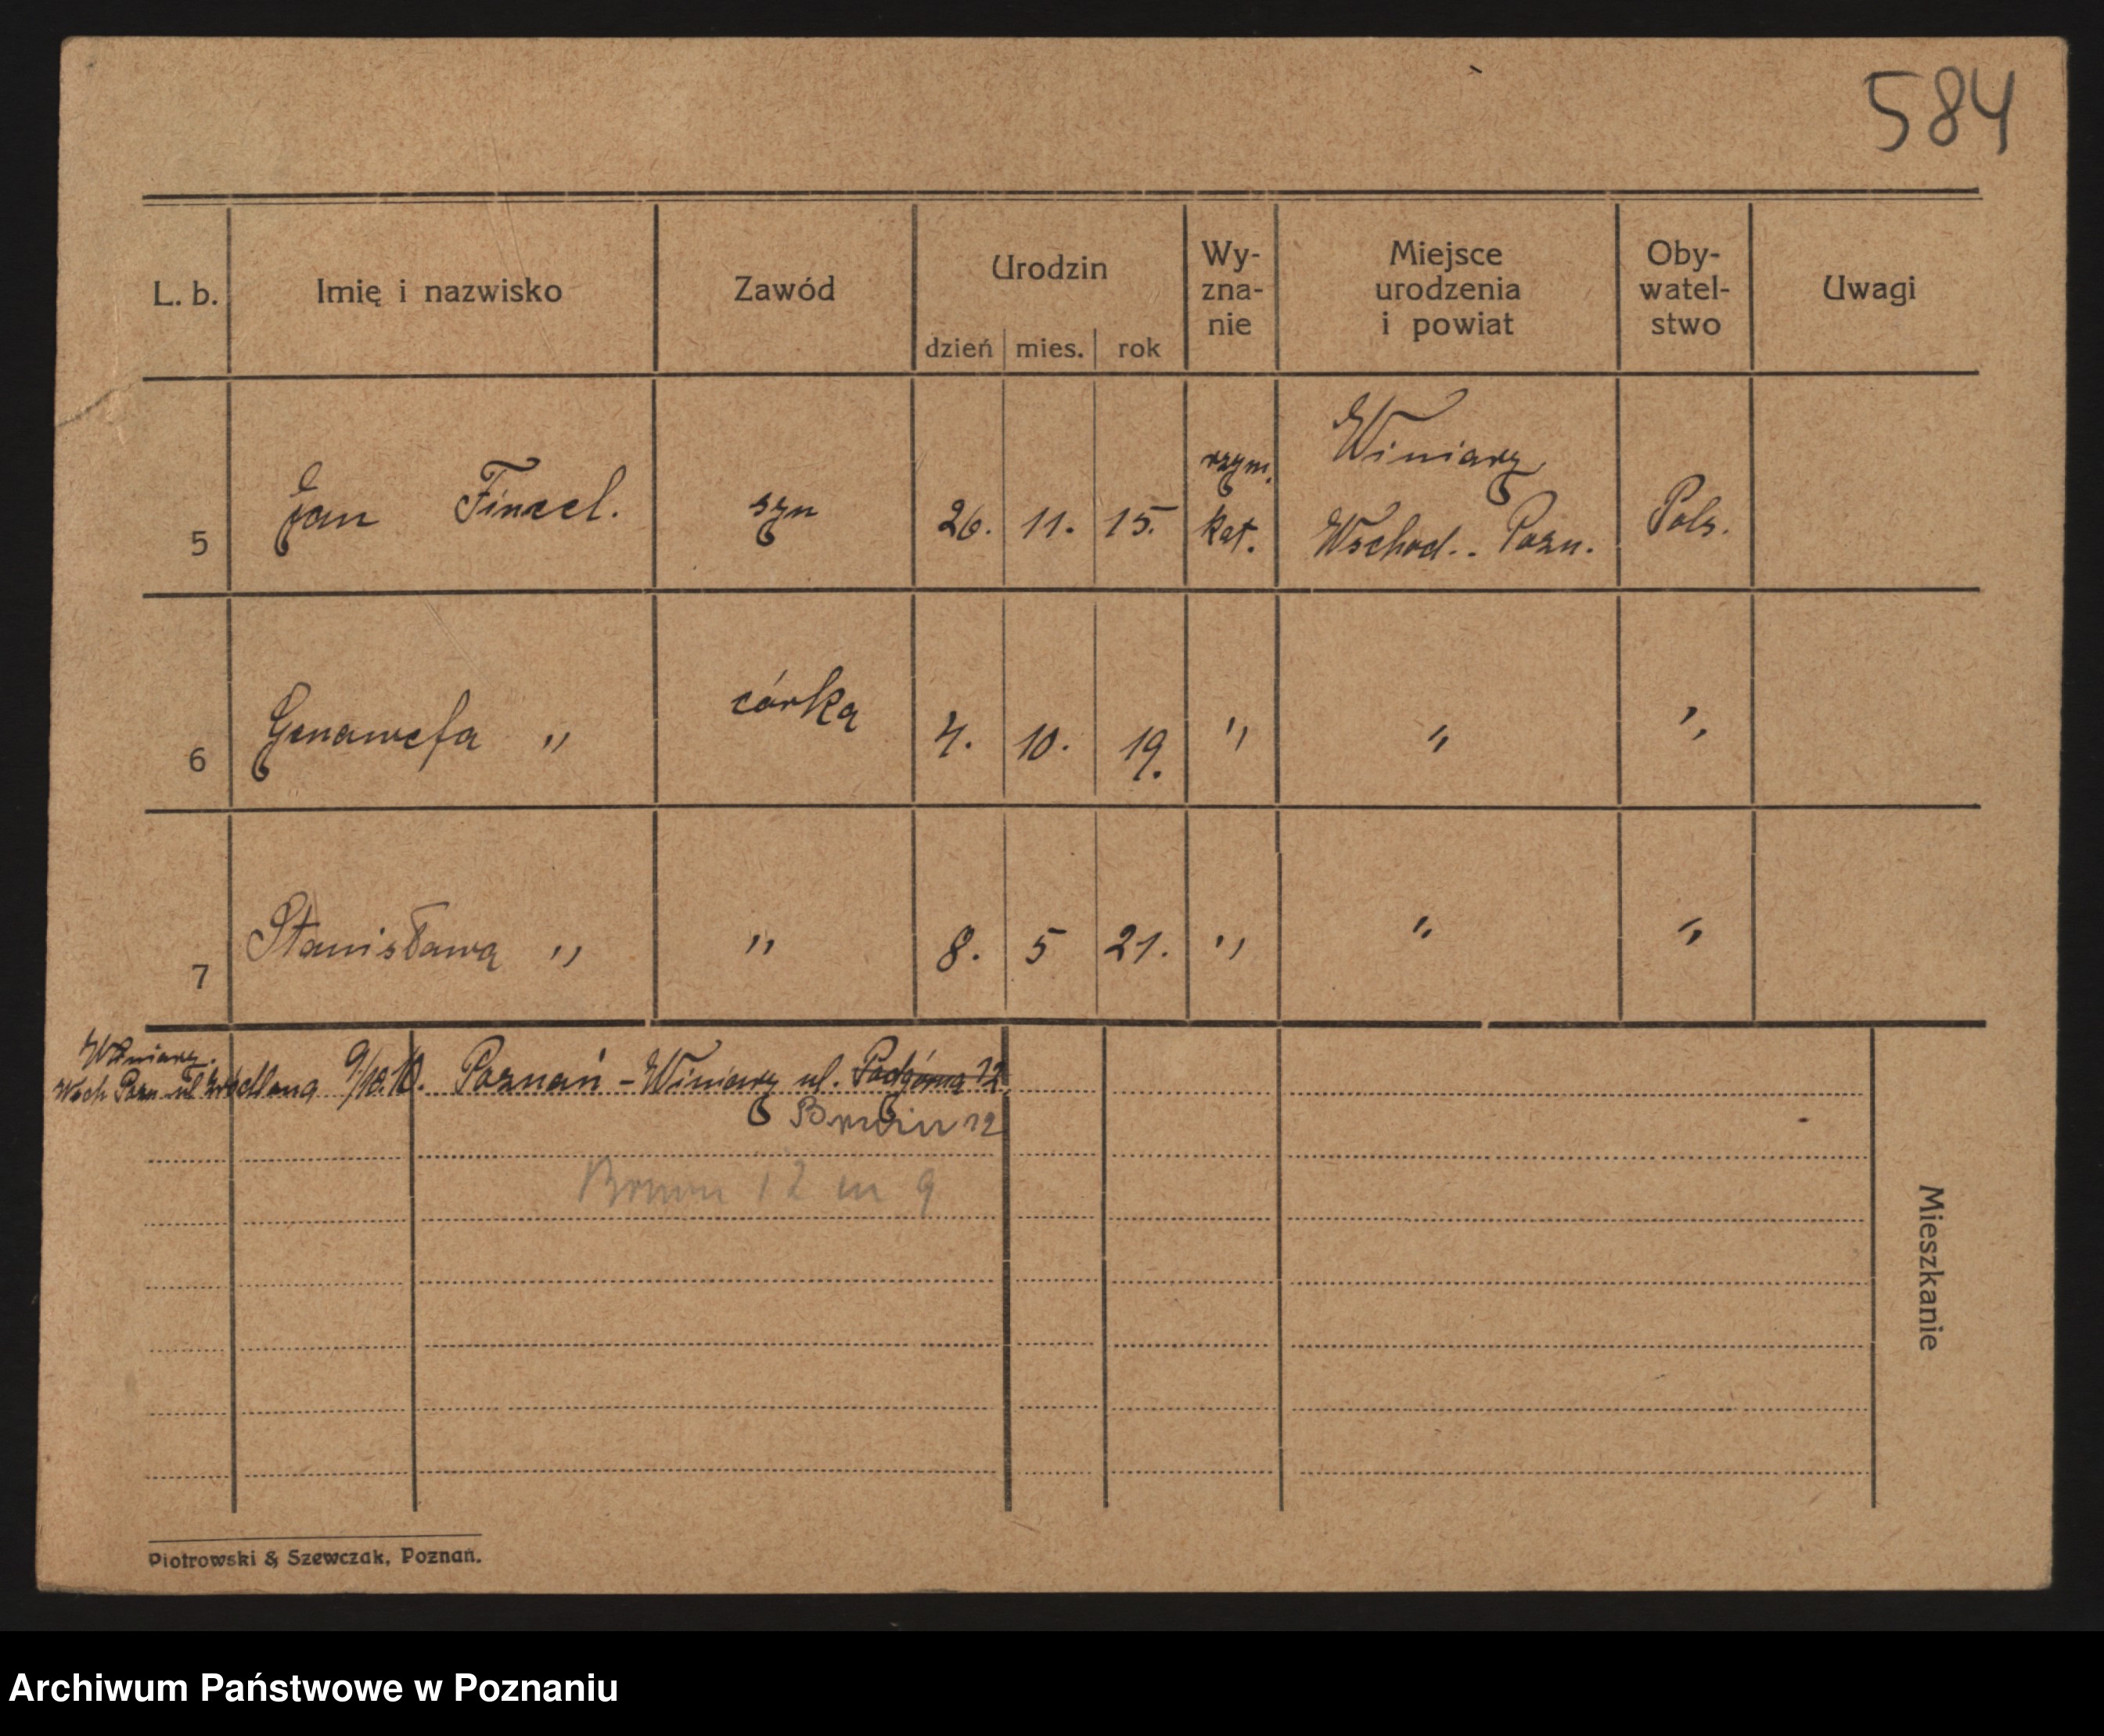 584
L. b. Imię i nazwisko Zawód Urodzin Wy- Miejsce Oby- Uwagi
zna- urodzenia watel-
nie i powiat stwo
dzień mies. rok
5 Jan Finzel. syn 26. 11. 15. rzym. kat. Winiary Wschod.. Pozn. Pols.
6 Genowefa " córka 4. 10. 19. " " "
7 Stanisława " " 8. 5 21. " " "
Winiary.
Wsch Pozn ul Źródlana 9/10.10. Poznań - Winiary ul. Podgórna 12
12
12 m 9
Mieszkanie
Piotrowski & Szewczak, Poznań.
Archiwum Państwowe w Poznaniu